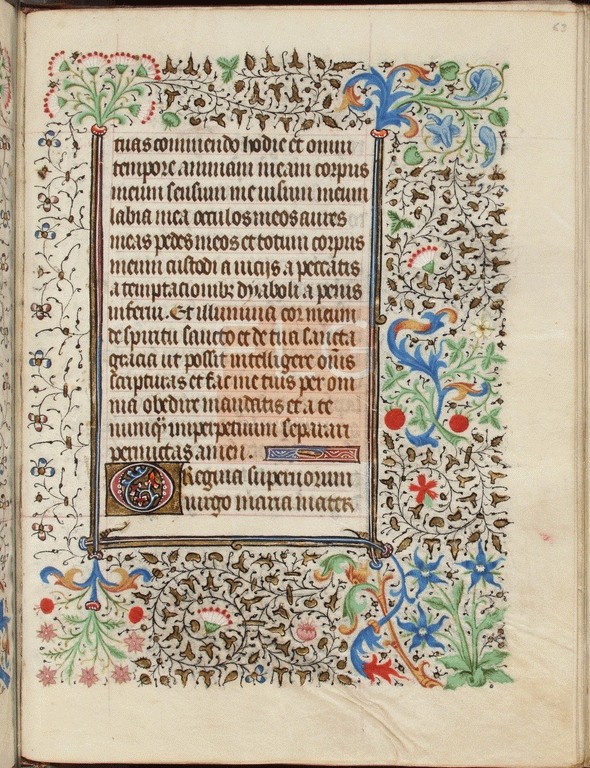 63
tuas commendo hodie et omni
tempore animam meam corpus
meum sensum me visum meum
labia mea occulos meos aures
meas pedes meos et totum corpus
meum custodi a vicijs a peccatis
a temptacionibꝫ dyaboli a penis
inferni. Et illumina cor meum
de spiritu sancto et de tua sancta
gracia ut possit intelligere oms
scripturas et fac me tuis per om
nia obedire mandatis et a te
numqꝫ in perpetuum separari
permictas amen.
O Regina supernorum
virgo maria mater